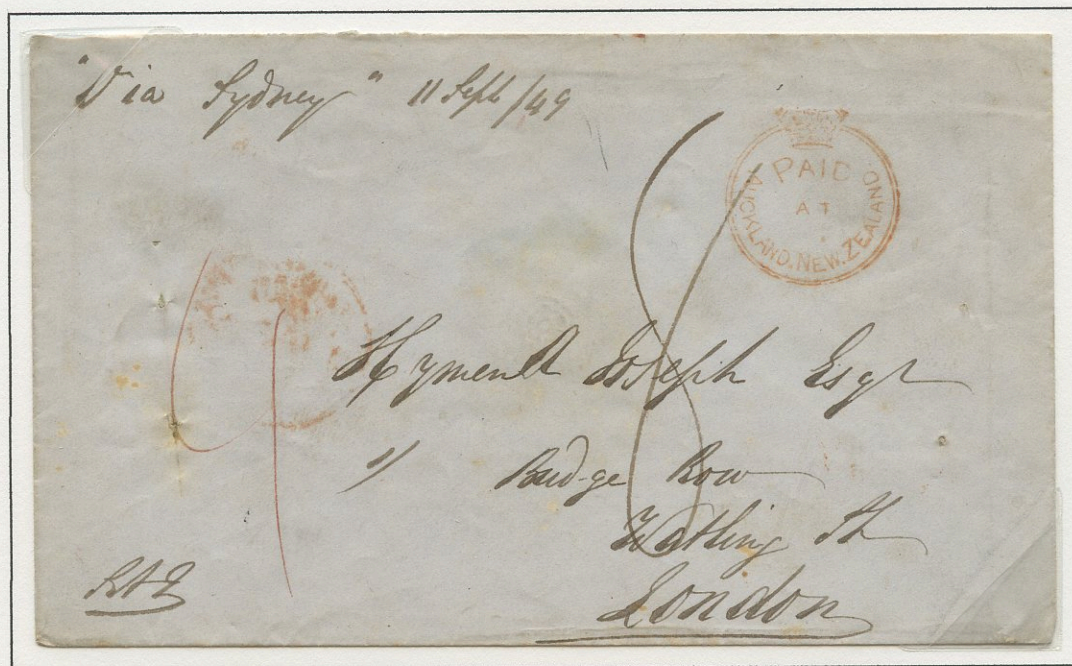 "Via Sydney" 11 Sept/49
PAID
AT
AUCKLAND. NEW. ZEALAND.
4
8
Joseph Esqr
11 Budge Row
Watling St
London